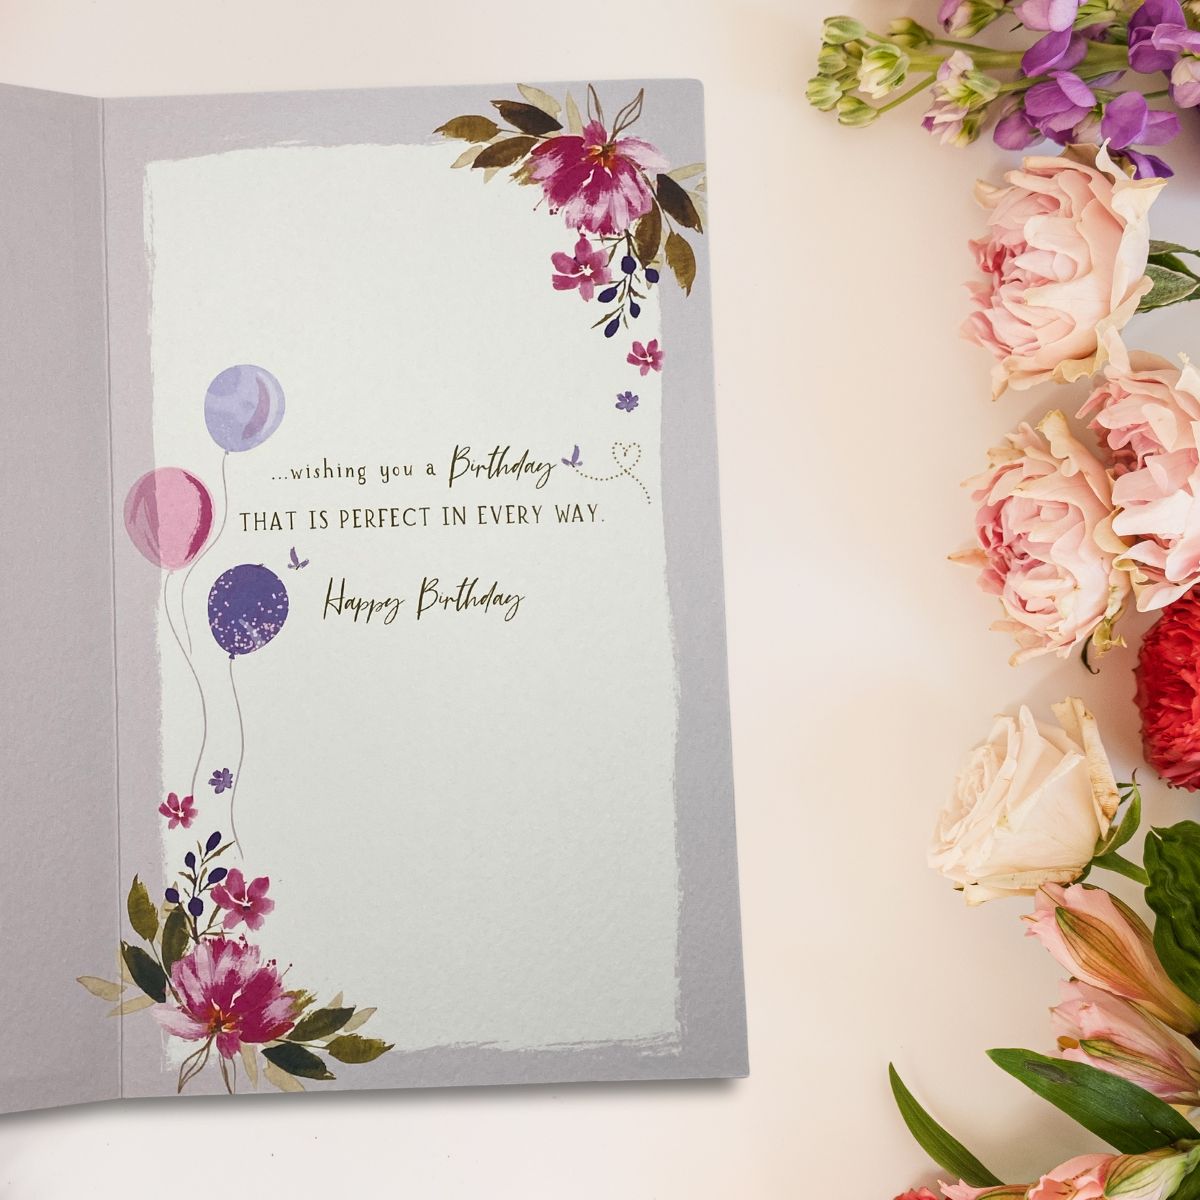 ...wishing you a Birthday
THAT IS PERFECT IN EVERY WAY.
Happy Birthday